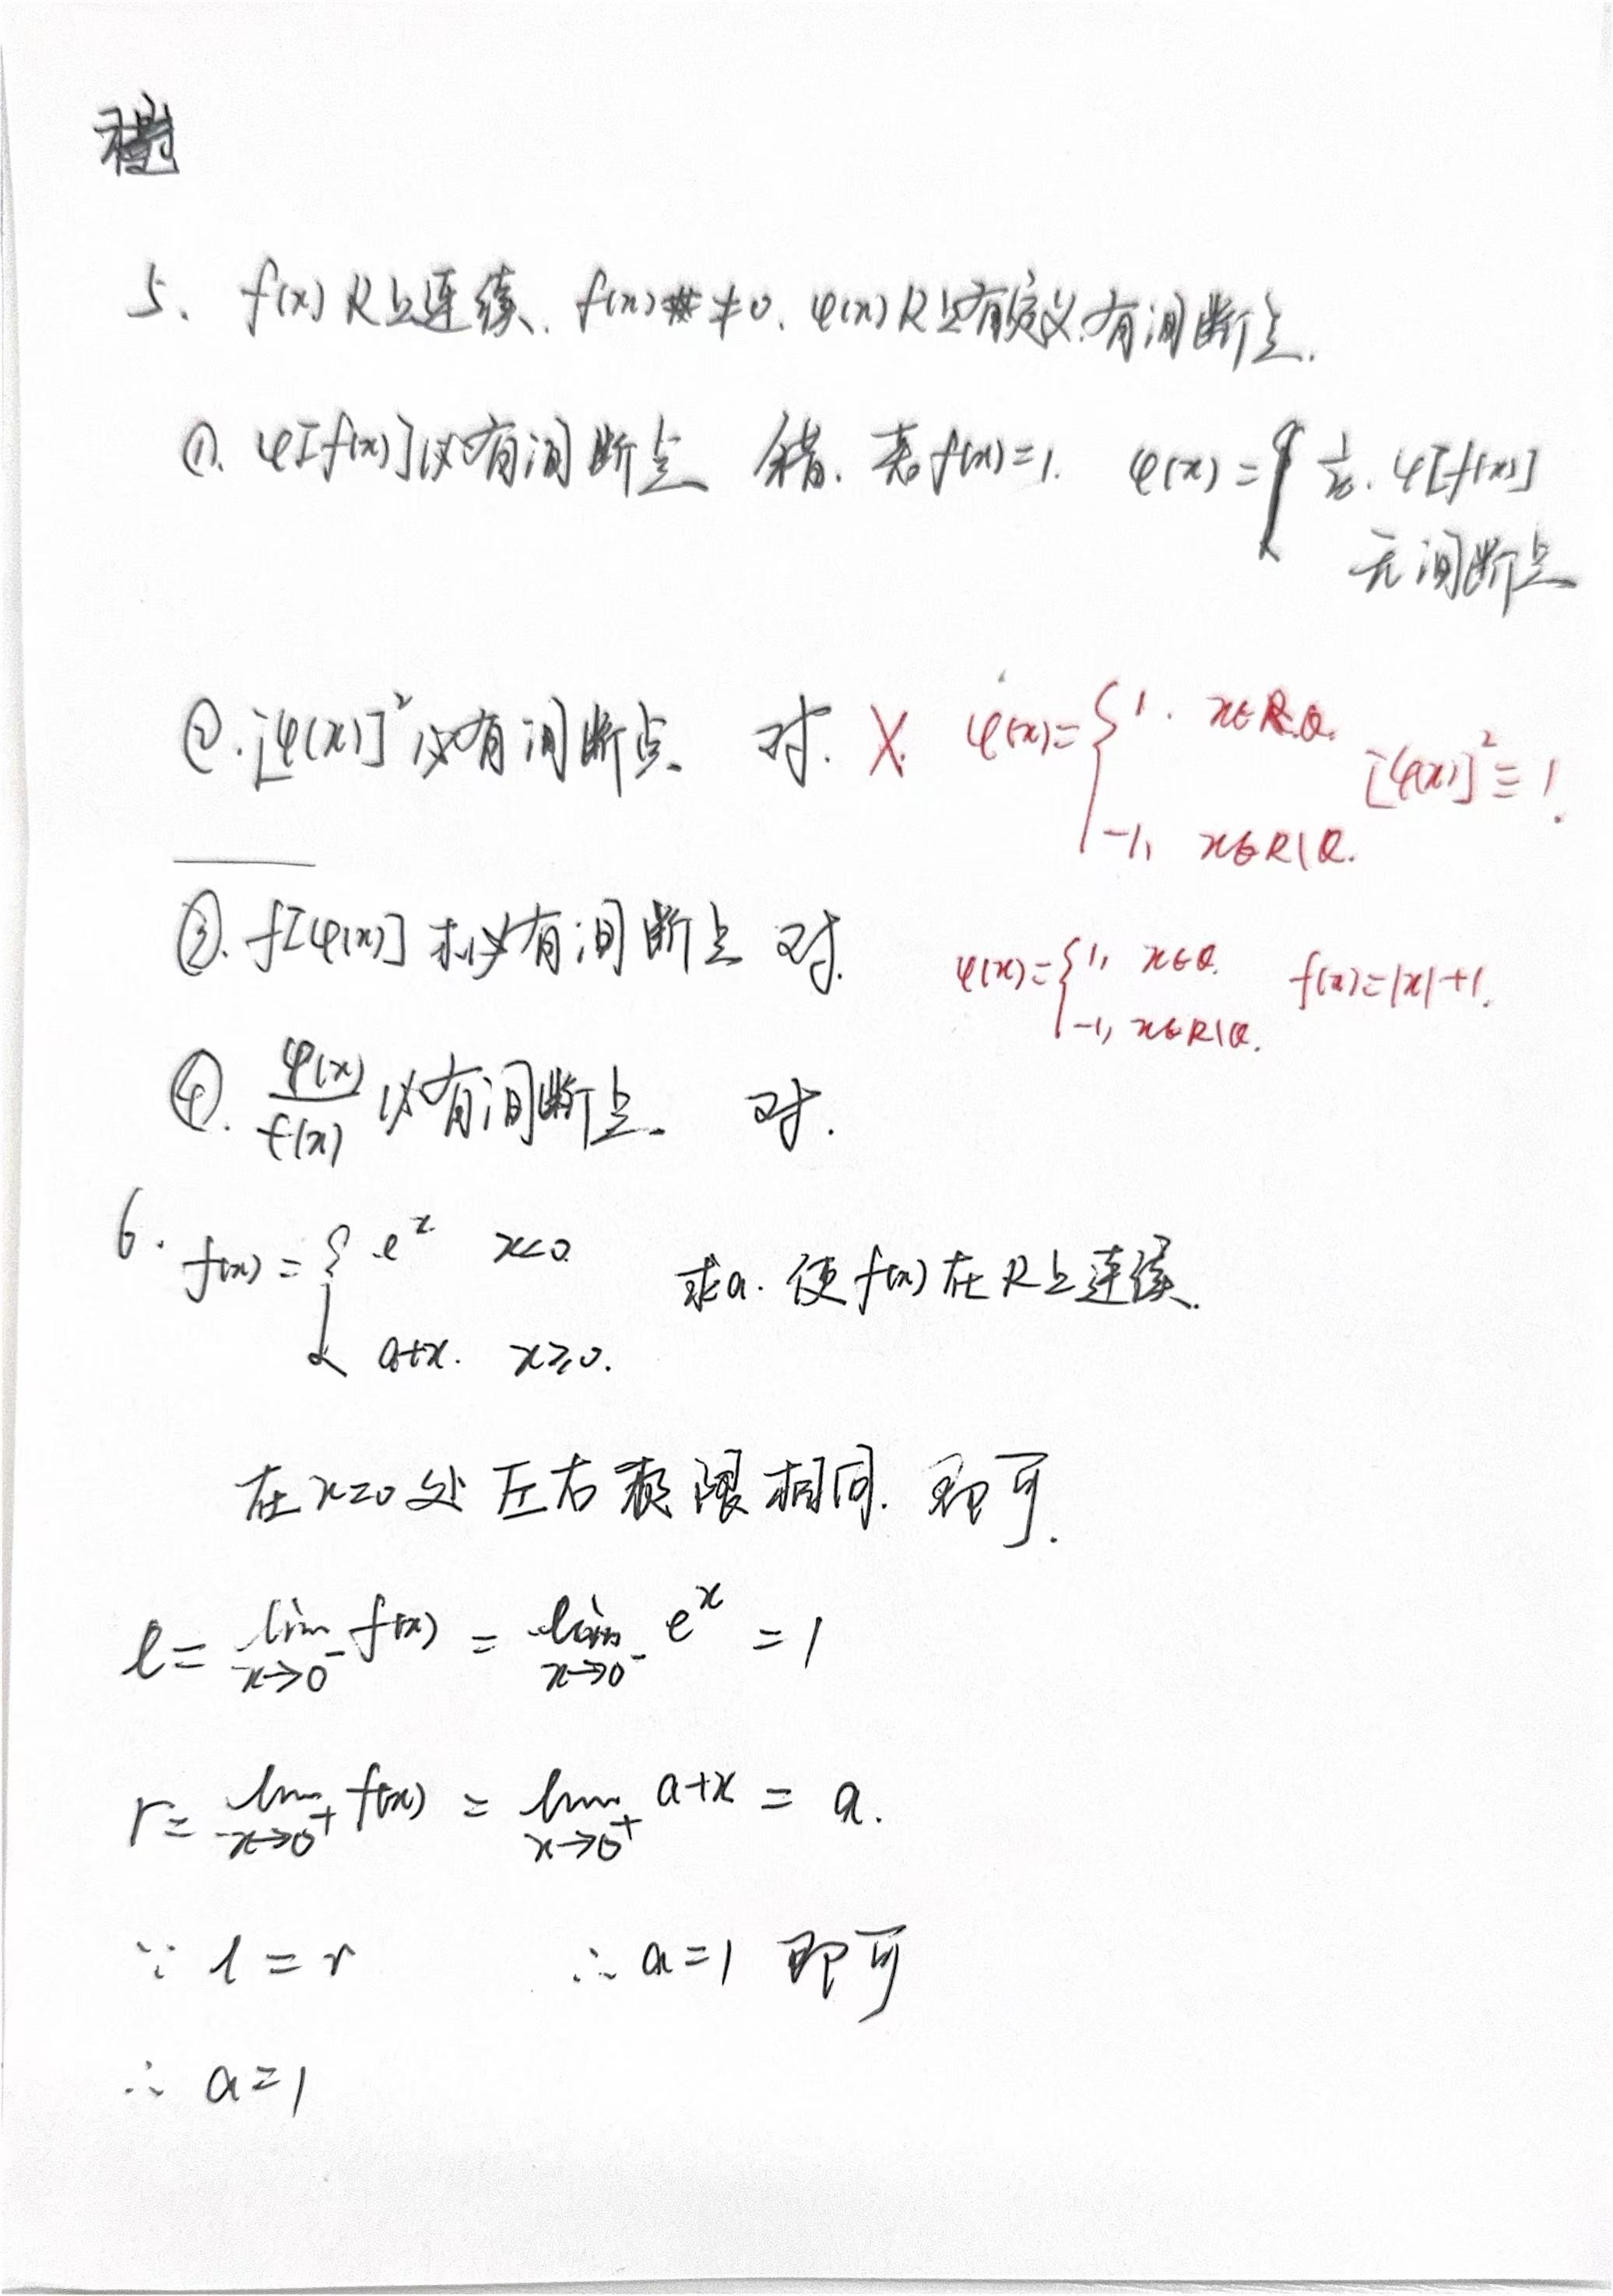 5、f(x) R上连续、f(x) ≠0、φ(x) R上有定义、有间断点.
①. φ[f(x)]必有间断点 错. 若f(x)=1. φ(x)={ 1/x. φ[f(x)]
无间断点
②. [φ(x)]²必有间断点. 对. X. φ(x)={ 1. x∈Q. [φ(x)]²≡1.
-1, x∈R\Q.
③. f[φ(x)] 未必有间断点 对. φ(x)={ 1, x∈Q. f(x)=|x|+1.
-1, x∈R\Q.
④. φ(x)/f(x) 必有间断点. 对.
6. f(x)={ e^x x<0. 求a. 使f(x)在R上连续.
a+x. x≥0.
在x=0处 左右极限相同. 即可.
l= lim x→0⁻ f(x) = lim x→0⁻ e^x =1
r= lim x→0⁺ f(x) = lim x→0⁺ a+x = a.
∵ l=r ∴ a=1 即可
∴ a=1